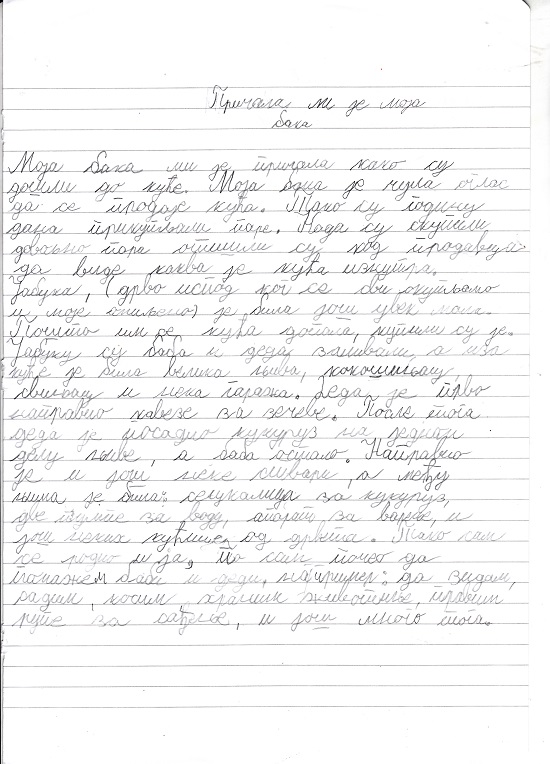 Причала ми је моја
бака
Моја бака ми је причала како су
дошли до куће. Моја баба је чула оглас
да се продаје кућа. Тако су годину
дана прикупљали паре. Када су скупили
довољно пара отишли су код продавца
да виде каква је кућа изнутра.
Јабука, (дрво испод ког се сви окупљамо
и моје омиљено) је била још увек мала.
Пошто им се кућа допала, купили су је.
Јабуку су баба и деда заливали, а иза
куће је била велика њива, кокошињац,
свињац и нека гаража. Деда је прво
направио кавезе за зечеве. После тога
деда је посадио кукуруз на једном
делу њиве, а баба остало. Направио
је и још неке ствари, а међу
њима је била: сецкалица за кукуруз,
две пумпе за воду, апарат за варење, и
још нека кућица од дрвета. Тако сам
се родио и ја, па сам почео да
помажем баби и деди, например: да зидам,
радим, косим, храним животиње, правим
рупе за сађење, и још много тога.